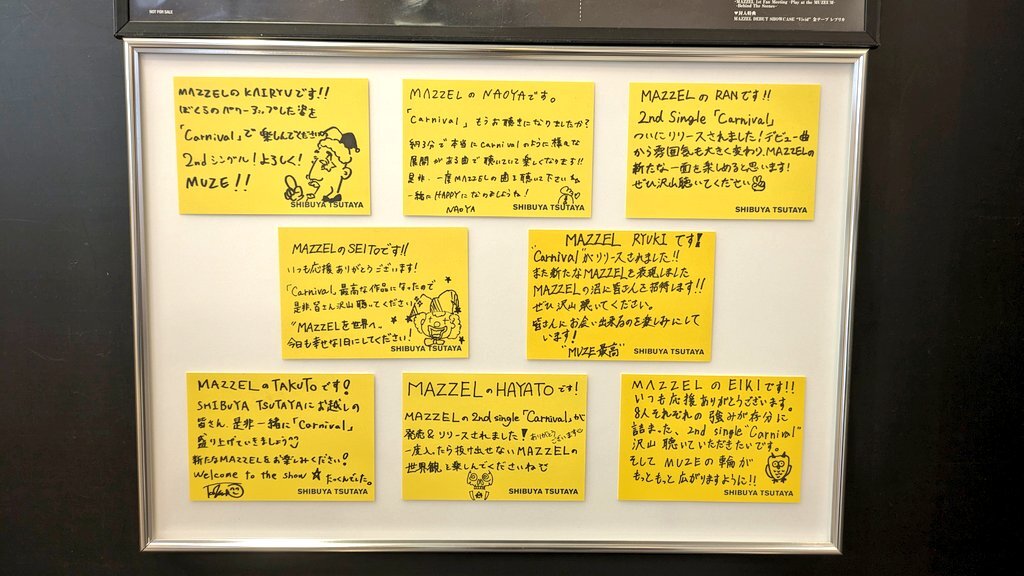 NOT FOR SALE
MAZZEL 1st Fan Meeting -Play at the MUZEUM-
-Behind The Scenes-
▼封入特典
MAZZEL DEBUT SHOWCASE "Vivid" 金テープ レプリカ
MAZZELのKAIRYUです!!
ぼくらのパワーアップした姿を
「Carnival」で楽しんでください
2ndシングル!よろしく!
MUZE!!
SHIBUYA TSUTAYA
MAZZELのNAOYAです。
「Carnival」もうお聴きになりましたか?
約3分で本当にCarnivalのように様々な
展開がある曲で聴いていて楽しくなります!!
是非、一度MAZZELの曲を聴いて下さいね
一緒にHAPPYになりましょうね!
NAOYA
SHIBUYA TSUTAYA
MAZZELのRANです!!
2nd Single「Carnival」
ついにリリースされました!デビュー曲
から雰囲気も大きく変わり、MAZZELの
新たな一面を楽しめると思います!
ぜひ沢山聴いてください
SHIBUYA TSUTAYA
MAZZELのSEITOです!!
いつも応援ありがとうございます!
「Carnival」最高な作品になったので
是非、皆さん沢山聴ってください!
"MAZZELを世界へ"
今日も幸せな1日にしてください!
SHIBUYA TSUTAYA
MAZZEL RYUKIです!
"Carnival"がリリースされました!!
また新たなMAZZELを表現しました
MAZZELの沼に皆さんを招待します!!
ぜひ沢山聴いてください。
皆さんにお会い出来るのを楽しみにして
います!
"MUZE最高"
SHIBUYA TSUTAYA
MAZZELのTAKUTOです!
SHIBUYA TSUTAYAにお越しの
皆さん、是非一緒に「Carnival」
盛り上げていきましょう
新たなMAZZELをお楽しみください!
Welcome to the show ☆ たっくんでした。
SHIBUYA TSUTAYA
MAZZELのHAYATOです!
MAZZELの2nd single「Carnival」が
発売&リリースされました!ありがとうございます
一度入ったら抜け出せないMAZZELの
世界観を楽しんでくださいね
SHIBUYA TSUTAYA
MAZZELのEIKIです!!
いつも応援ありがとうございます。
8人それぞれの強みが存分に
詰まった、2nd single "Carnival"
沢山聴いていただきたいです。
そしてMUZEの輪が
もっともっと広がりますように!!
SHIBUYA TSUTAYA